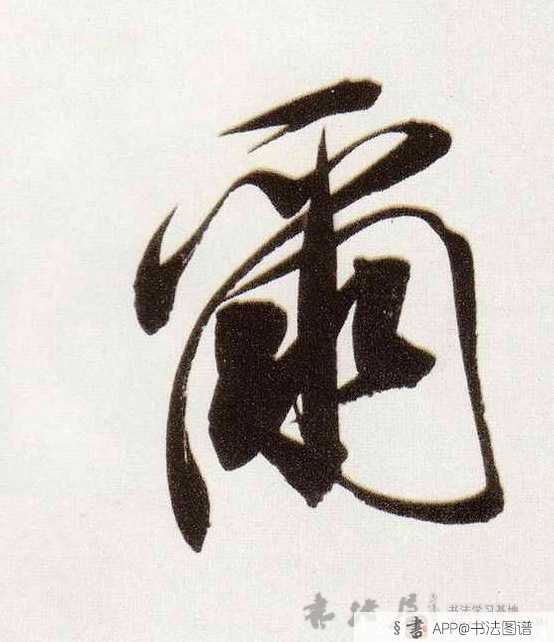 爾
书法学习基地
書 APP@书法图谱